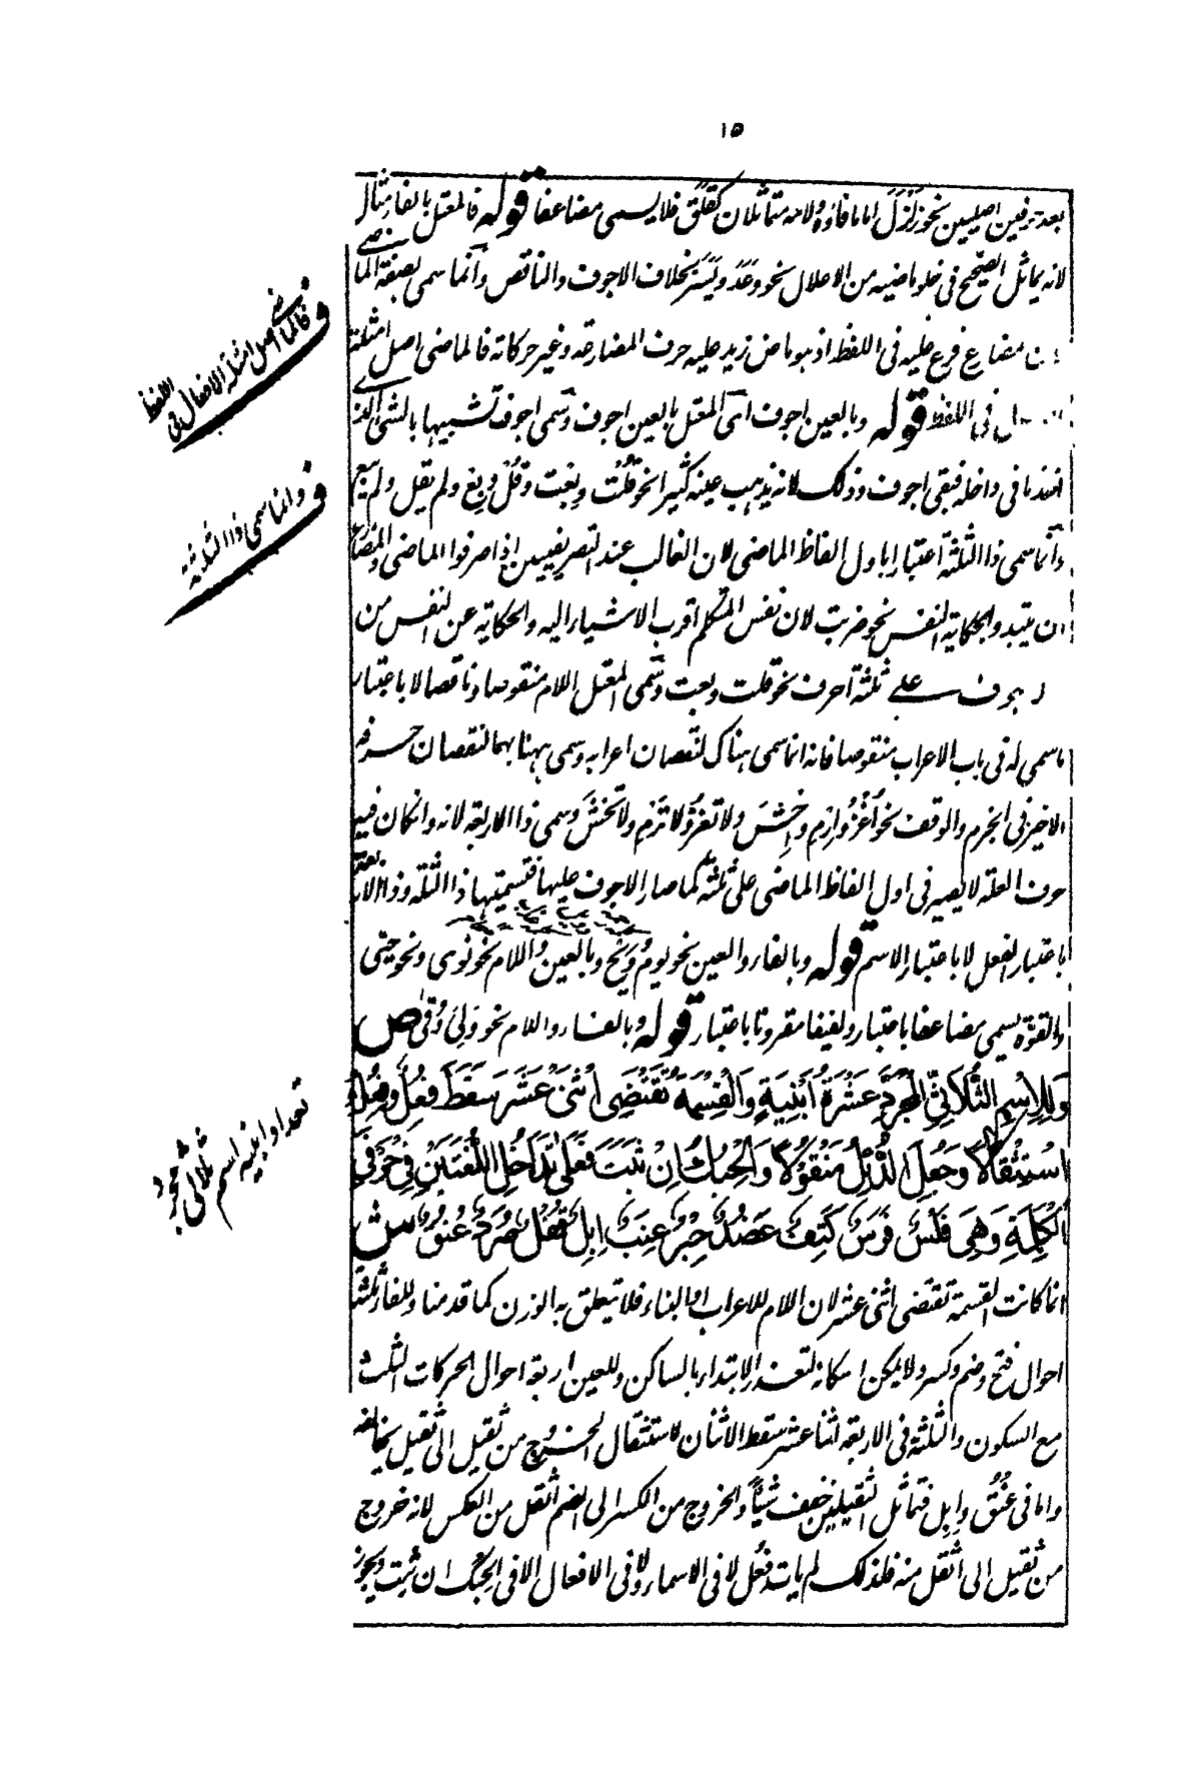 ١٥
بعد حرفين اصليين نحو زَلْزَلَ اما ما فاؤه ولامه متماثلان كَقَلَقٍ فلا يسمى مضاعفا قوله فالمعتل بالفاء مثال
لانه يماثل الصحيح فى خلو ماضيه من الاعلال نحو وَعَدَ ويَسَرَ بخلاف الاجوف والناقص وانما سمى بصيغة الماضى
مضارع فرع عليه فى اللفظ اذ هو ماض زيد عليه حرف المضارعة وغير حركاته فالماضى اصل امثلة
فى اللفظ قوله وبالعين اجوف اى المعتل بالعين اجوف وسمى اجوف تشبيها بالشئ الذى
اخذ ما فى داخله فبقى اجوف وذلك لانه يذهب عينه كثيرا نحو قُلْتُ وبِعْتُ وقُلْ وبِعْ ولم يقل ولم يبع
وانما سمى ذا الثلثة اعتبارا باول الفاظ الماضى لان الغالب عند التصريفيين اذا صرفوا الماضى والمضارع
ان يبتدوا بحكاية النفس نحو ضربت لان نفس المتكلم اقرب الاشياء اليه والحكاية عن النفس من
على ثلثة احرف نحو قلت وبعت وسمى المعتل اللام منقوصا وناقصا لا باعتبار
ما سمى له فى باب الاعراب منقوصا فانه انما سمى هناك لنقصان اعرابه وسمى ههنا بهما لنقصان حرفه
الاخير فى الجزم والوقف نحو اُغْزُ وارمِ واخشَ ولا تغزُ ولا ترمِ ولا تخشَ وسمى ذا الاربعة لانه وان كان فيه
حرف العلة لا يصير فى اول الفاظ الماضى على ثلثة كما صار الاجوف عليها فتسميتها ذا الثلثة وذا الاربعة
باعتبار الفعل لا باعتبار الاسم قوله وبالفاء والعين نحو يوم ووَيْح وبالعين واللام نحو نوى ونحو حيى
والقوة يسمى مضاعفا باعتبار ولفيفا مقرونا باعتبار قوله وبالفاء واللام نحو وَلِىَ ووَقى ص
وَلِلْاِسْمِ الثُّلَاثِيِّ الْمُجَرَّدِ عَشَرَةُ اَبْنِيَةٍ وَالْقِسْمَةُ تَقْتَضِى اثْنَىْ عَشَرَ سَقَطَ فُعِلٌ وَفِعُلٌ
اسْتِثْقَالًا وَجُعِلَ الدُّئِلُ مَنْقُوْلًا وَالْحِبُكُ اِنْ ثَبَتَ فَعَلَى تَدَاخُلِ اللُّغَتَيْنِ فِى حَرْفَىِ
الْكَلِمَةِ وَهِىَ فَلْسٌ فَرَسٌ كَتِفٌ عَضُدٌ حِبْرٌ عِنَبٌ اِبِلٌ قُفْلٌ صُرَدٌ عُنُقٌ ش
انما كانت القسمة تقتضى اثنى عشر لان اللام للاعراب او البناء فلا يتعلق به الوزن كما قدمنا وللفاء ثلثة
احوال فتح وضم وكسر ولا يمكن اسكانه لتعذر الابتداء بالساكن وللعين اربعة احوال الحركات الثلث
مع السكون والثلثة فى الاربعة اثنا عشر سقط الاثنان لاستثقال الخروج من ثقيل الى ثقيل يخالفه
واما فى عُنُقٍ وابِلٍ فتماثل الثقيلين خفف شيئًا والخروج من الكسر الى الضم اثقل من العكس لانه خروج
من ثقيل الى اثقل منه فلذلك لم يات فِعُل لا فى الاسماء ولا فى الافعال الا فى الحِبُك ان ثبت ويجوز
ف فالماضى اصل امثلة الافعال فى اللفظ
ف وانما سمى ذا الثلثة
تعداد ابنيه اسم ثلاثى مجرد